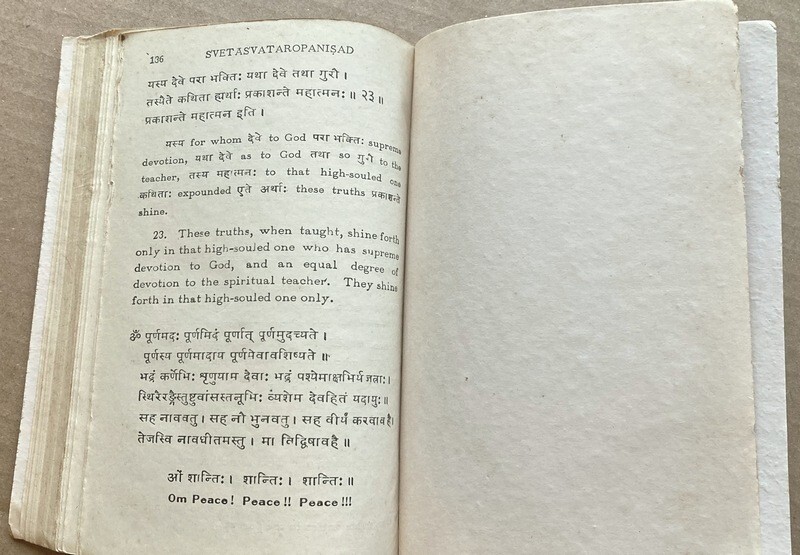 136
SVETASVATAROPANIṢAD
यस्य देवे परा भक्तिः यथा देवे तथा गुरौ ।
तस्यैते कथिता ह्यर्थाः प्रकाशन्ते महात्मनः ॥ २३ ॥
प्रकाशन्ते महात्मन इति ।
यस्य for whom देवे to God परा भक्तिः supreme
devotion, यथा देवे as to God तथा so गुरौ to the
teacher, तस्य महात्मनः to that high-souled one
कथिताः expounded एते अर्थाः these truths प्रकाशन्ते
shine.
23. These truths, when taught, shine forth
only in that high-souled one who has supreme
devotion to God, and an equal degree of
devotion to the spiritual teacher. They shine
forth in that high-souled one only.
ॐ पूर्णमदः पूर्णमिदं पूर्णात् पूर्णमुदच्यते ।
पूर्णस्य पूर्णमादाय पूर्णमेवावशिष्यते ॥
भद्रं कर्णेभिः श्रृणुयाम देवाः भद्रं पश्येमाक्षभिर्यजत्राः ।
स्थिरैरङ्गैस्तुष्टुवांसस्तनूभिः व्यशेम देवहितं यदायुः ॥
सह नाववतु । सह नौ भुनक्तु । सह वीर्यं करवावहै ।
तेजस्वि नावधीतमस्तु । मा विद्विषावहै ॥
ओं शान्तिः । शान्तिः । शान्तिः ॥
Om Peace! Peace!! Peace!!!